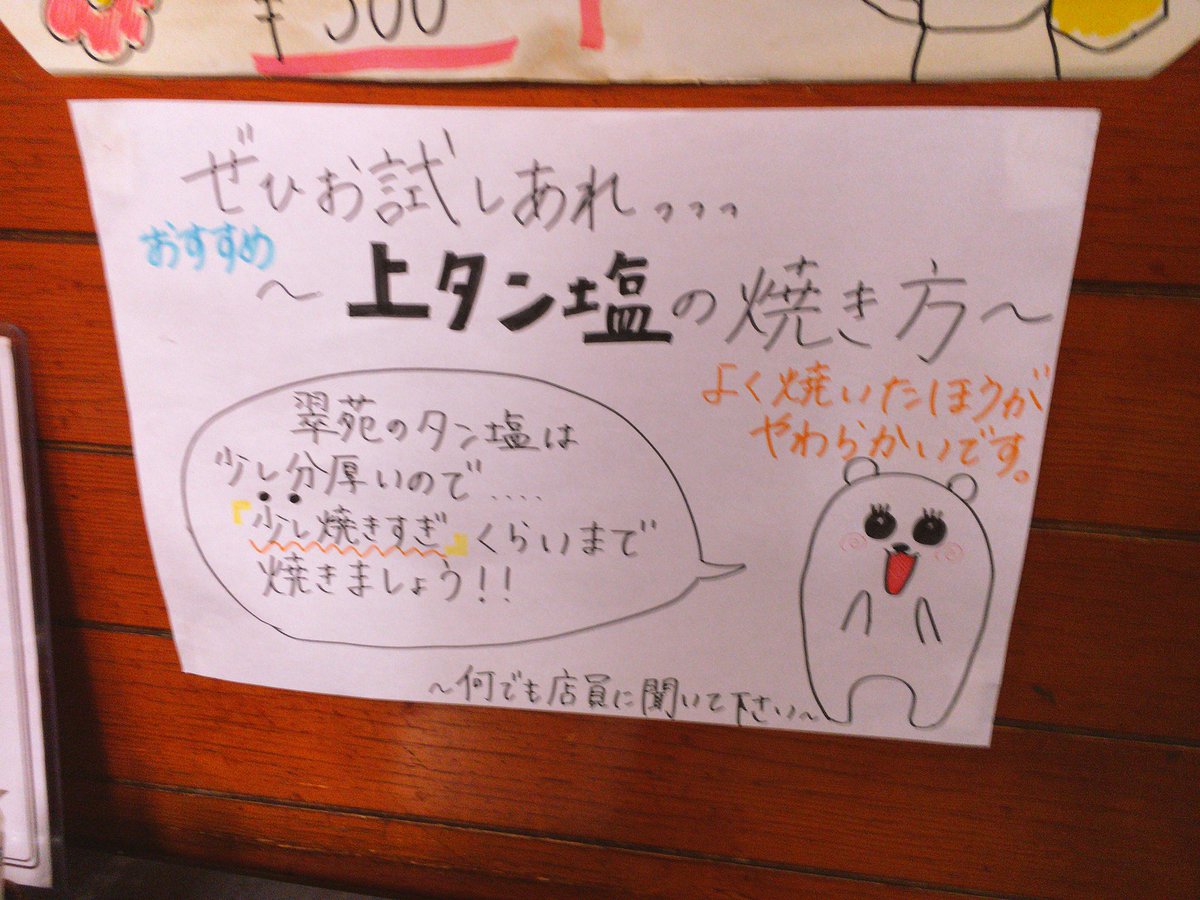 ¥500
ぜひお試しあれ。。。
おすすめ
～上タン塩の焼き方～
よく焼いたほうが
やわらかいです。
翠苑のタン塩は
少し分厚いので....
『少し焼きすぎ』くらいまで
焼きましょう!!
～何でも店員に聞いて下さい～